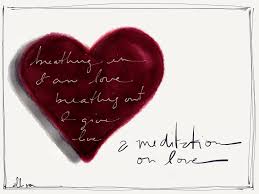 breathing in
I am love
breathing out
I give
love
a meditation
on love